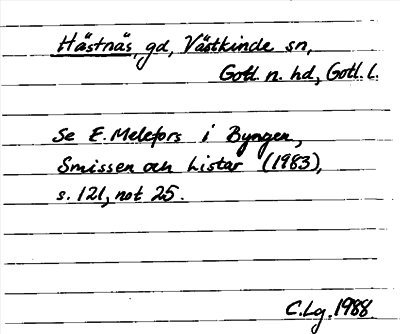 Hästnäs, gd, Västkinde sn,
Gotl. n. hd, Gotl. l.
Se E. Melefors i Byngen,
Smissen och Listar (1983),
s. 121, not 25.
C.Lg. 1988.